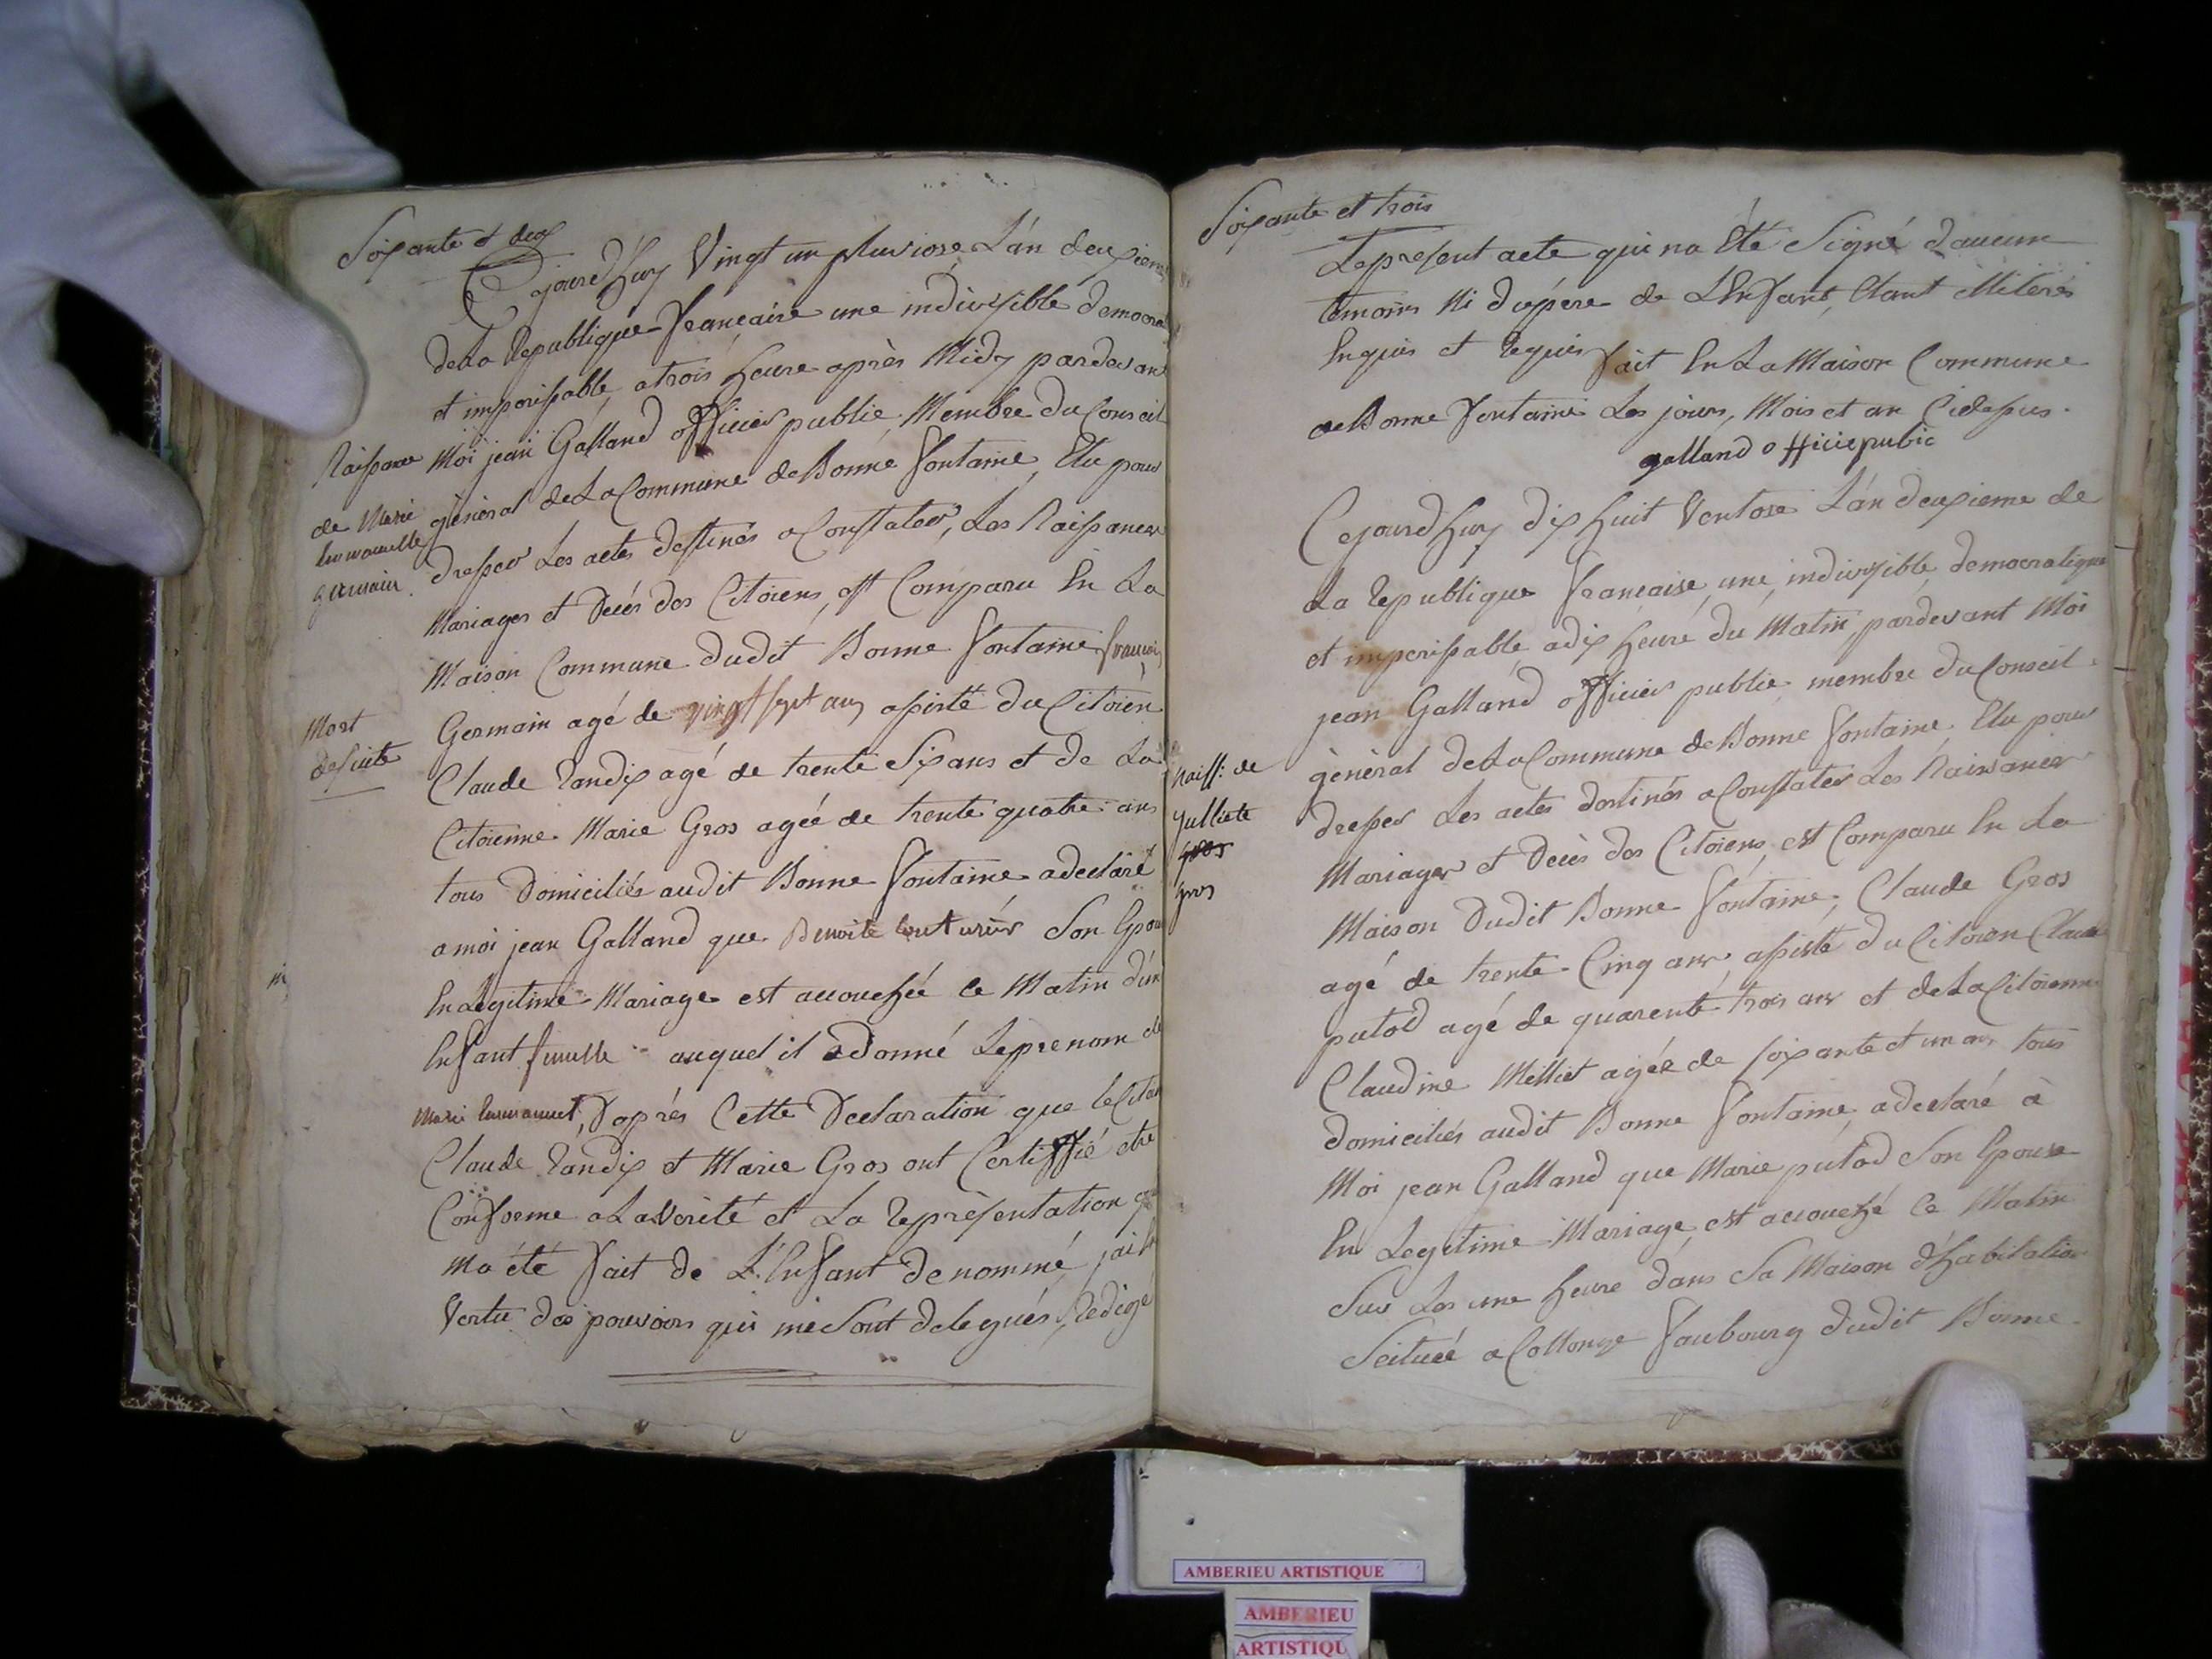 Soixante et deux
Cejourdhuy Vingt un pluviose L'an deuxieme
de La Republique francaise une indivisible democra
et imperissable, a trois heure après Midy pardevant
Moi jean Galland officier public, Membre du Conseil
général de La Commune de Bonne fontaine, Elu pour
dresser Les actes destinés a Constater, Les Naissances
Mariages et Décés des Citoiens, est Comparu En La
Maison Commune dudit Bonne fontaine francois
Germain agé de vingt sept ans assisté du Citoien
Claude agé de trente Six ans et de La
Citoienne Marie Gros agée de trente quatre ans
tous Domiciliés audit Bonne fontaine a declaré
a moi jean Galland que Benoite Couturier Son Epou
En Legitime Mariage est accouchée Ce Matin d'un
Enfant femelle auquel il a Donné Le prenom de
Marie Emmanuel, D'aprés Cette Declaration que le Citoi
Claude et Marie Gros ont Certiffié etre
Conforme a La Vérité et La Représentation qui
Ma été fait de L'Enfant denommé jai En
Vertu des pouvoirs qui me Sont delegués, Redigé
Naissance
de Marie
Emmanuelle
germain
Mort
de suite
Soixante et trois
Le present acte qui na Eté Signé daucun
temoins Ni du père de L'Enfant, Etant illiterés
Enquis et Requis fait En La Maison Commune
de Bonne fontaine Les jours, Mois et an Cidessus.
galland officie pubic
Cejourdhuy dix huit Ventose L'an deuxieme de
La Republique francaise, une, indivisible democratique
et imperissable a dix heure du Matin pardevant Moi
jean Galland officier public, membre du Conseil
général de La Commune de Bonne fontaine. Elu pour
dresser Les actes destinés a Constater Les Naissances
Mariages et Decès des Citoiens, est Comparu En La
Maison Dudit Bonne fontaine, Claude Gros
agé de trente Cinq ans, assisté du Citoien Claude
putod agé de quarente trois ans et de La Citoienne
Claudine Milliet agée de soixante et un ans tous
domiciliés audit Bonne fontaine, a declaré à
Moi jean Galland que Marie putod Son Epouse
En Legitime Mariage, est accouché Ce Matin
Sur Les une heure dans Sa Maison d'habitation
Scituée a Collonge faubourg dudit Bonne
naiss: de
Julliete
gros
gros
AMBERIEU ARTISTIQUE
AMBERIEU
ARTISTIQU